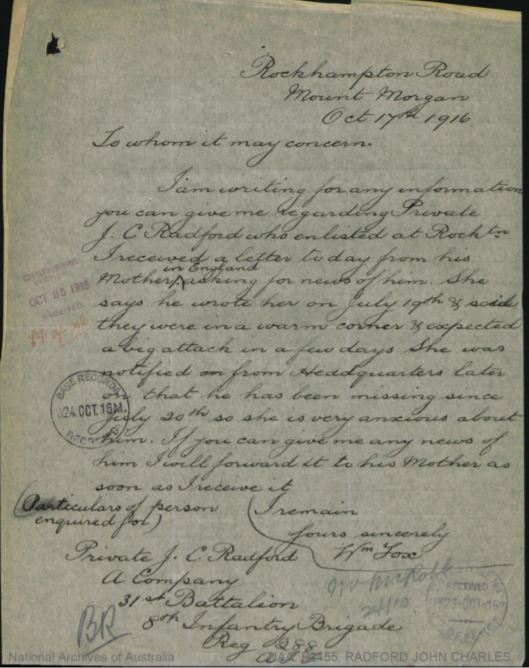 Rockhampton Road
Mount Morgan
Oct 17th 1916
To whom it may concern.
I am writing for any information
you can give me regarding Private
J. C. Radford who enlisted at Rocktn
I received a letter to day from his
Mother, in England asking for news of him. She
says he wrote her on July 19th & said
they were in a warm corner & expected
a big attack in a few days. She was
notified on from Headquarters later
on that he has been missing since
July 20th so she is very anxious about
him. If you can give me any news of
him I will forward it to his Mother as
soon as I receive it
(Particulars of person
enquired for)
I remain
Yours sincerely
Wm Fox
Private J. C. Radford
A Company
31st Battalion
8th Infantry Brigade
Reg
OCT 25 1916
RECEIVED
BASE RECORDS
24.OCT.16
24/10
RECEIVED
23-OCT-16
DEFENCE
BR
National Archives of Australia
RADFORD JOHN CHARLES